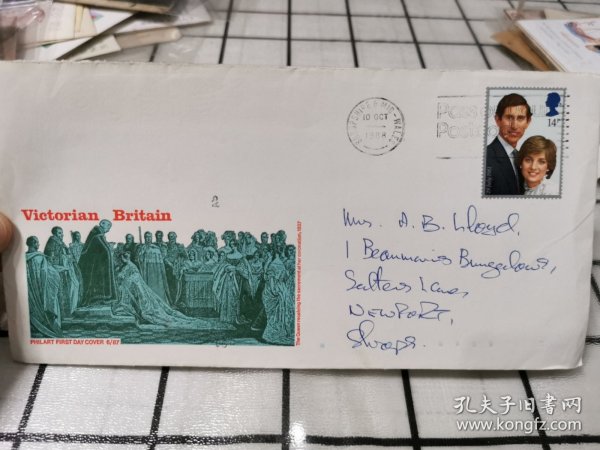 10 OCT
1988
14P
Victorian Britain
The Queen receiving the sacrament at her coronation, 1837
PHILART FIRST DAY COVER 6/87
Mrs. A. B. Lloyd,
1 Beaumaris Bungalows,
Salters Lane,
NEWPORT,
Shrops.
孔夫子旧书网
www.kongfz.com